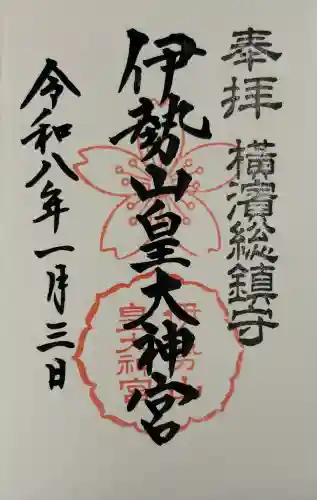 奉拝 横濱総鎮守
伊勢山皇大神宮
令和八年一月三日
伊勢山
皇大神宮